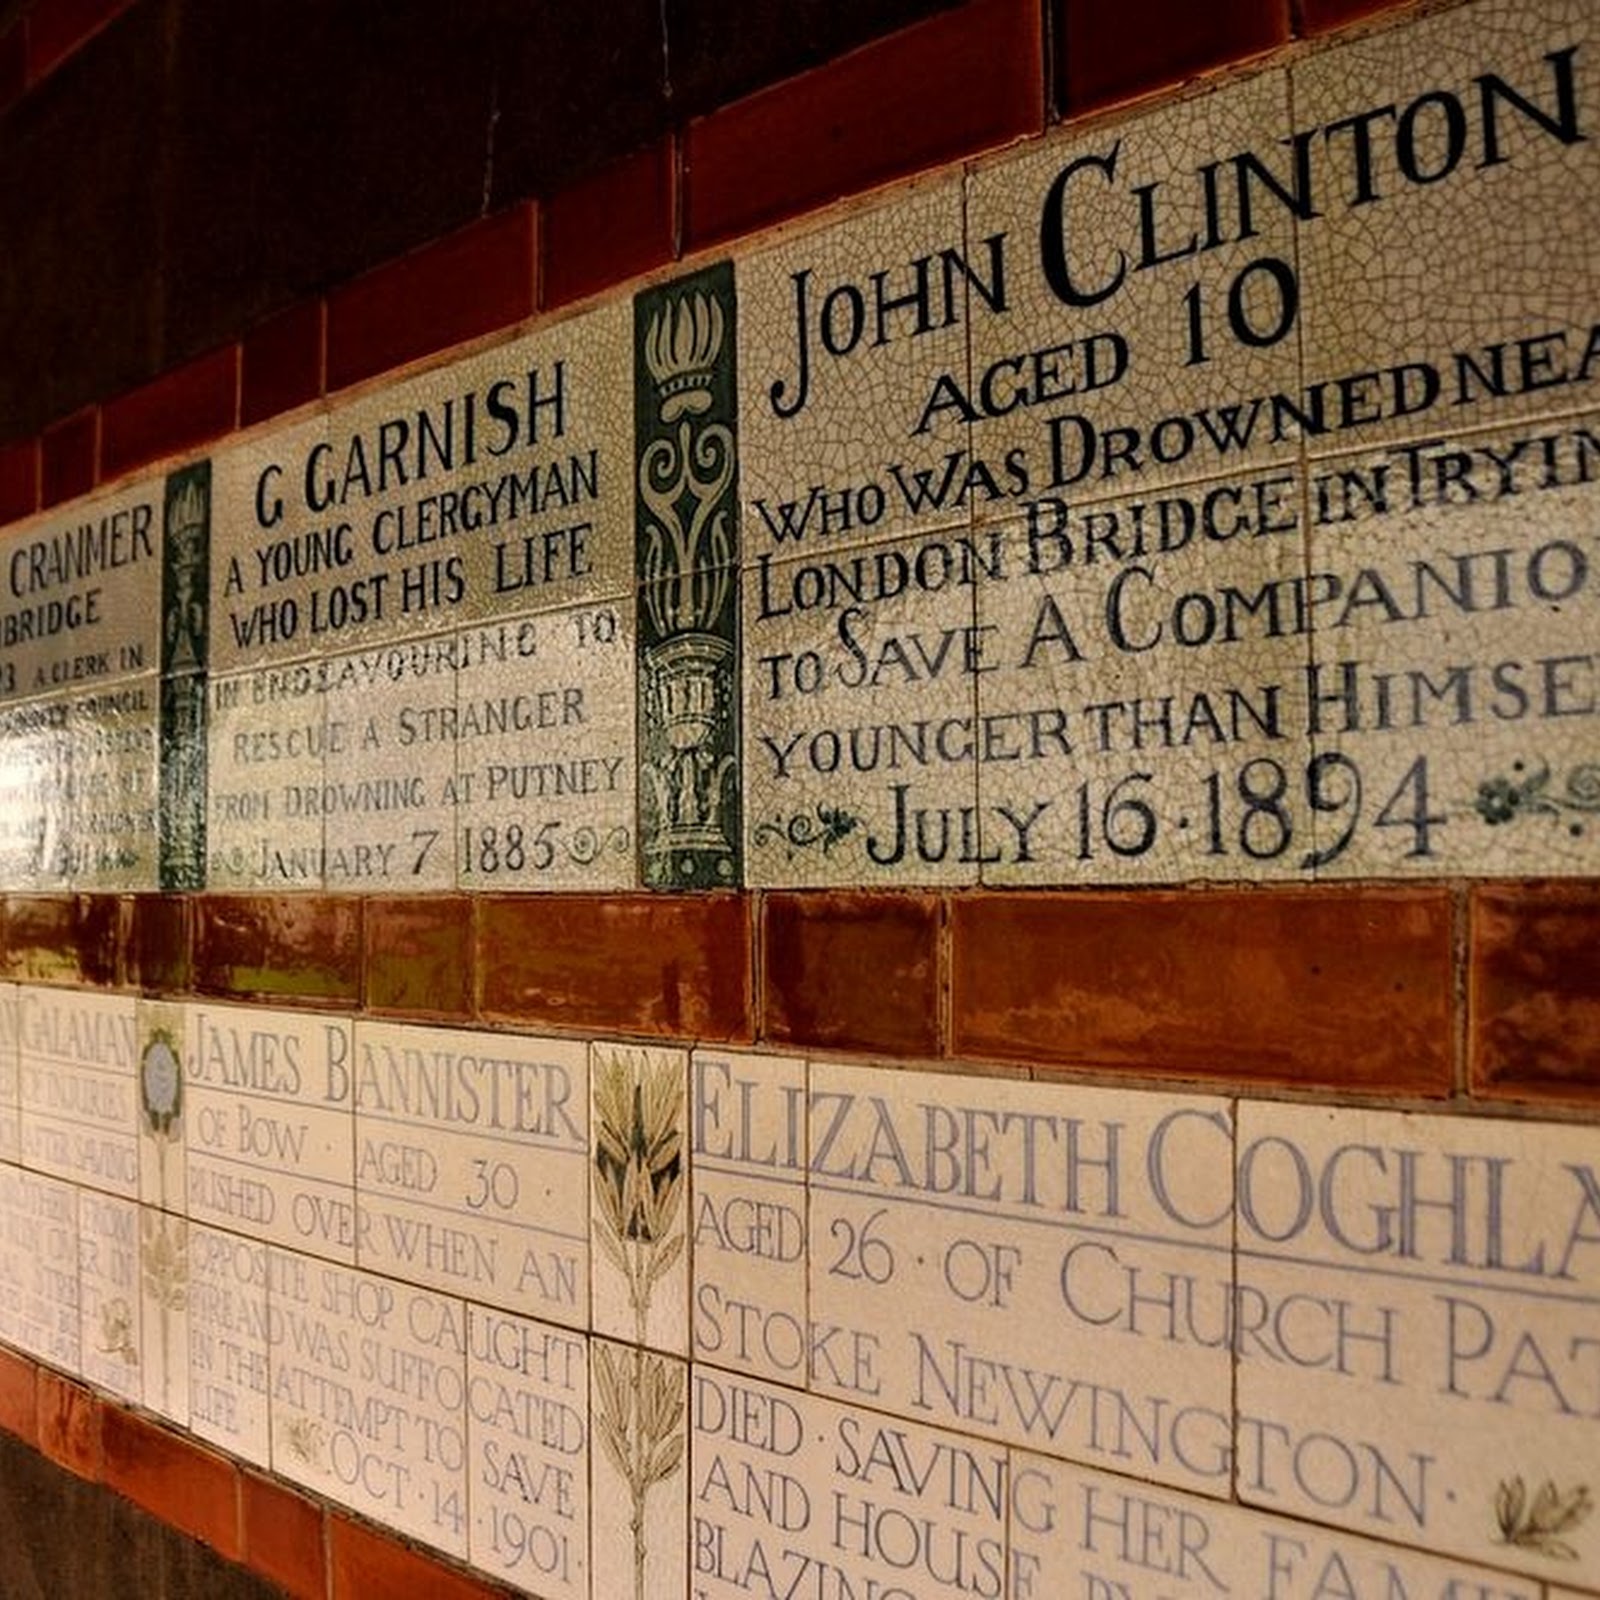 CRANMER
MBRIDGE
A CLERK IN
COUNCIL
G GARNISH
A YOUNG CLERGYMAN
WHO LOST HIS LIFE
IN ENDEAVOURING TO
RESCUE A STRANGER
FROM DROWNING AT PUTNEY
JANUARY 7 1885
JOHN CLINTON
AGED 10
WHO WAS DROWNED NEA
LONDON BRIDGE IN TRYIN
TO SAVE A COMPANIO
YOUNGER THAN HIMSE
JULY 16·1894
GALAMAN
INJURIES
AFTER SAVING
FROM
JAMES BANNISTER
OF BOW · AGED 30 ·
RUSHED OVER WHEN AN
OPPOSITE SHOP CAUGHT
FIRE AND WAS SUFFOCATED
IN THE ATTEMPT TO SAVE
LIFE · OCT·14·1901·
ELIZABETH COGHLA
AGED 26 · OF CHURCH PAT
STOKE NEWINGTON ·
DIED · SAVING HER FAMI
AND HOUSE BY
BLAZING